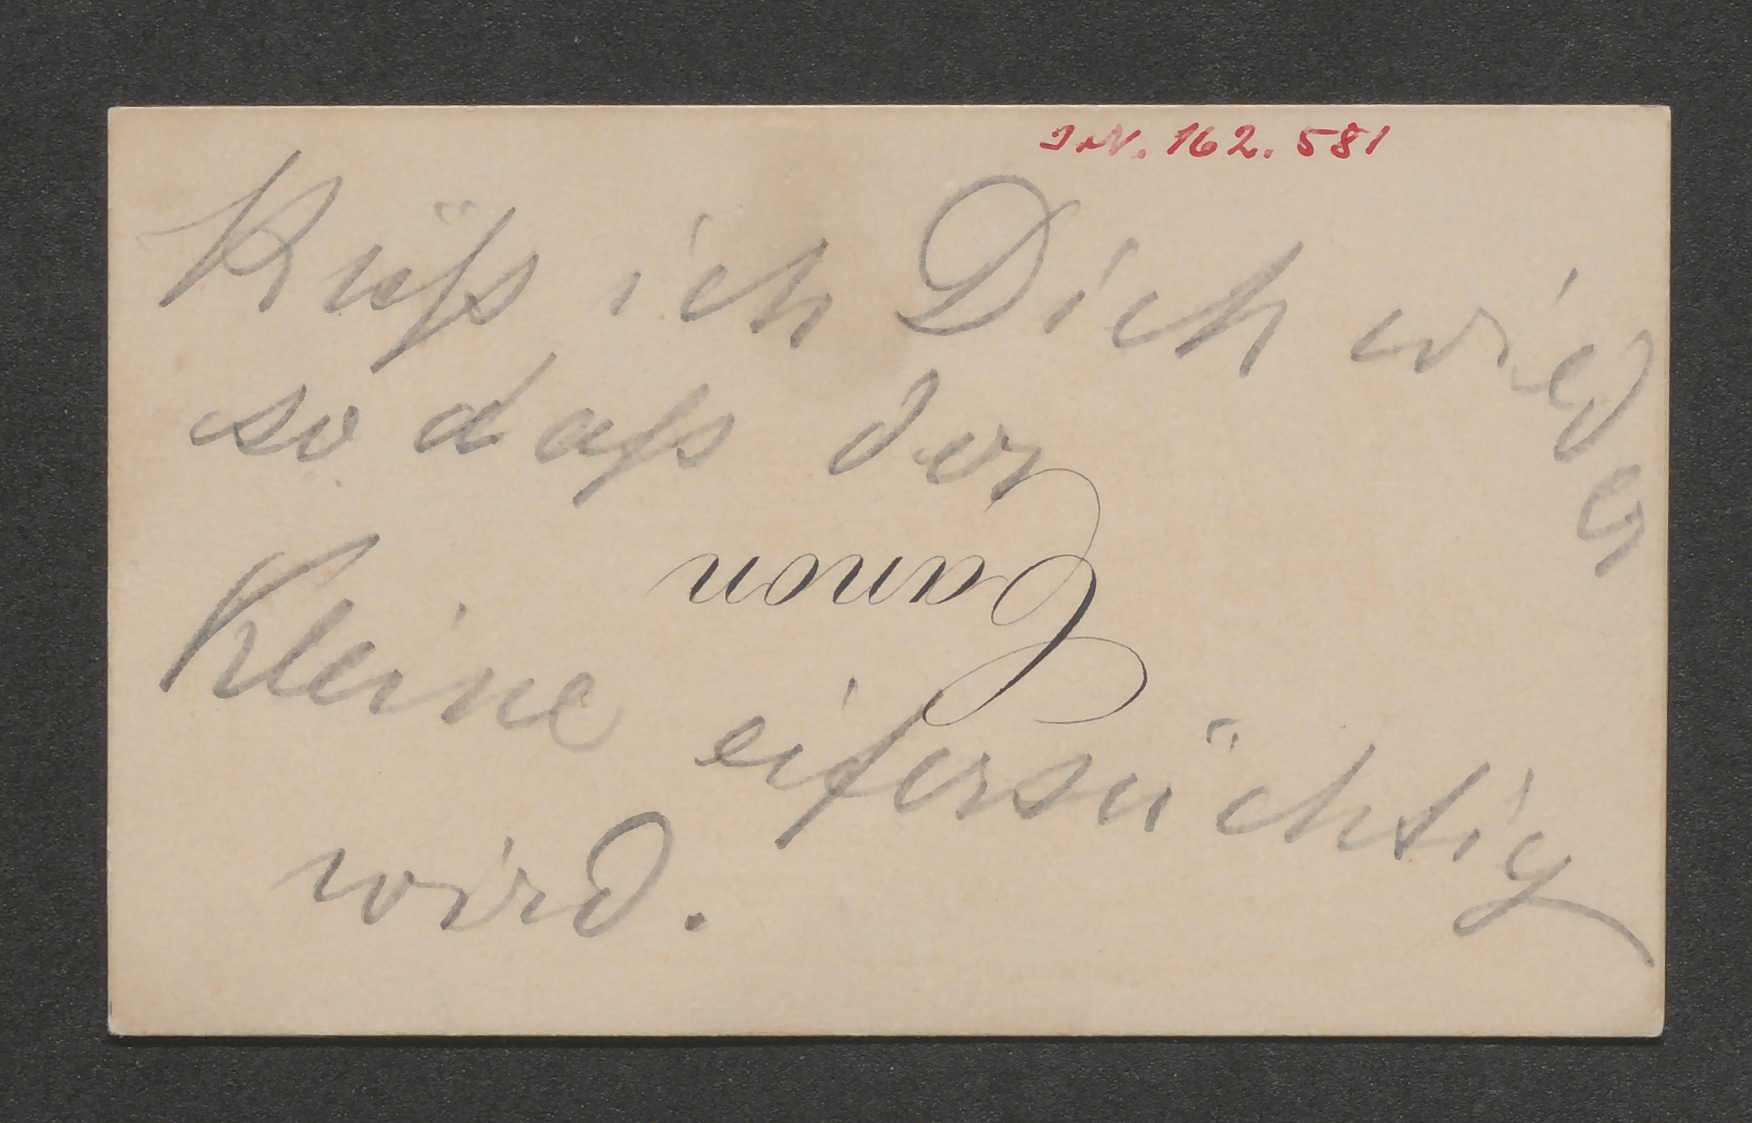 I.N. 162.581
Küß ich Dich wieder
so daß der
Canon
Kleine eifersüchtig
wird.